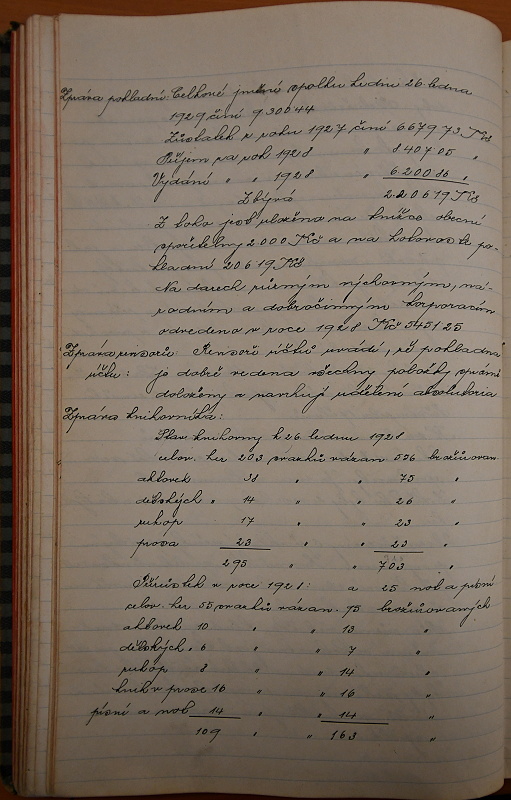 Zpráva pokladní: Celkové jmění spolku ku dnu 26. ledna
1929 činí 9 300 44
Zůstatek z roku 1927 činí 6679 73 Kč
Příjem za rok 1928 " 8407 05 "
Vydání " " 1928 " 6200 86 "
Zbývá 2206 19 Kč
Z toho jest uloženo na knížce obecné
spořitelny 2000 Kč a na hotovosti po-
kladní 206 19 Kč
Na darech různým výchovným, ná-
rodním a dobročinným korporacím
odvedeno v roce 1928 Kč 5451 25
Zpráva revisorů Revisoři účtů uvádí, že pokladna
účtu: je dobře vedena všechny položky správně
doloženy a navrhují udělení absolutoria
Zpráva knihovníka:
Stav knihovny k 26. lednu 1928
celov. her 203 svazků rázan. 526 brožůrovan.
aktovek 38 " " 75 "
dětských " 14 " " 26 "
rukop 17 " " 23 "
prosa 23 " " 23 "
295 " " 703 "
Přírůstek v roce 1928: a 25 not a písní
celov. her 55 svazků vázan. 75 brožůrovaných
aktovek 10 " " 13 "
dětských " 6 " " 7 "
rukop 8 " " 14 "
knih v prose 16 " " 16 "
písní a not 14 " " 14 "
109 " " 163 "